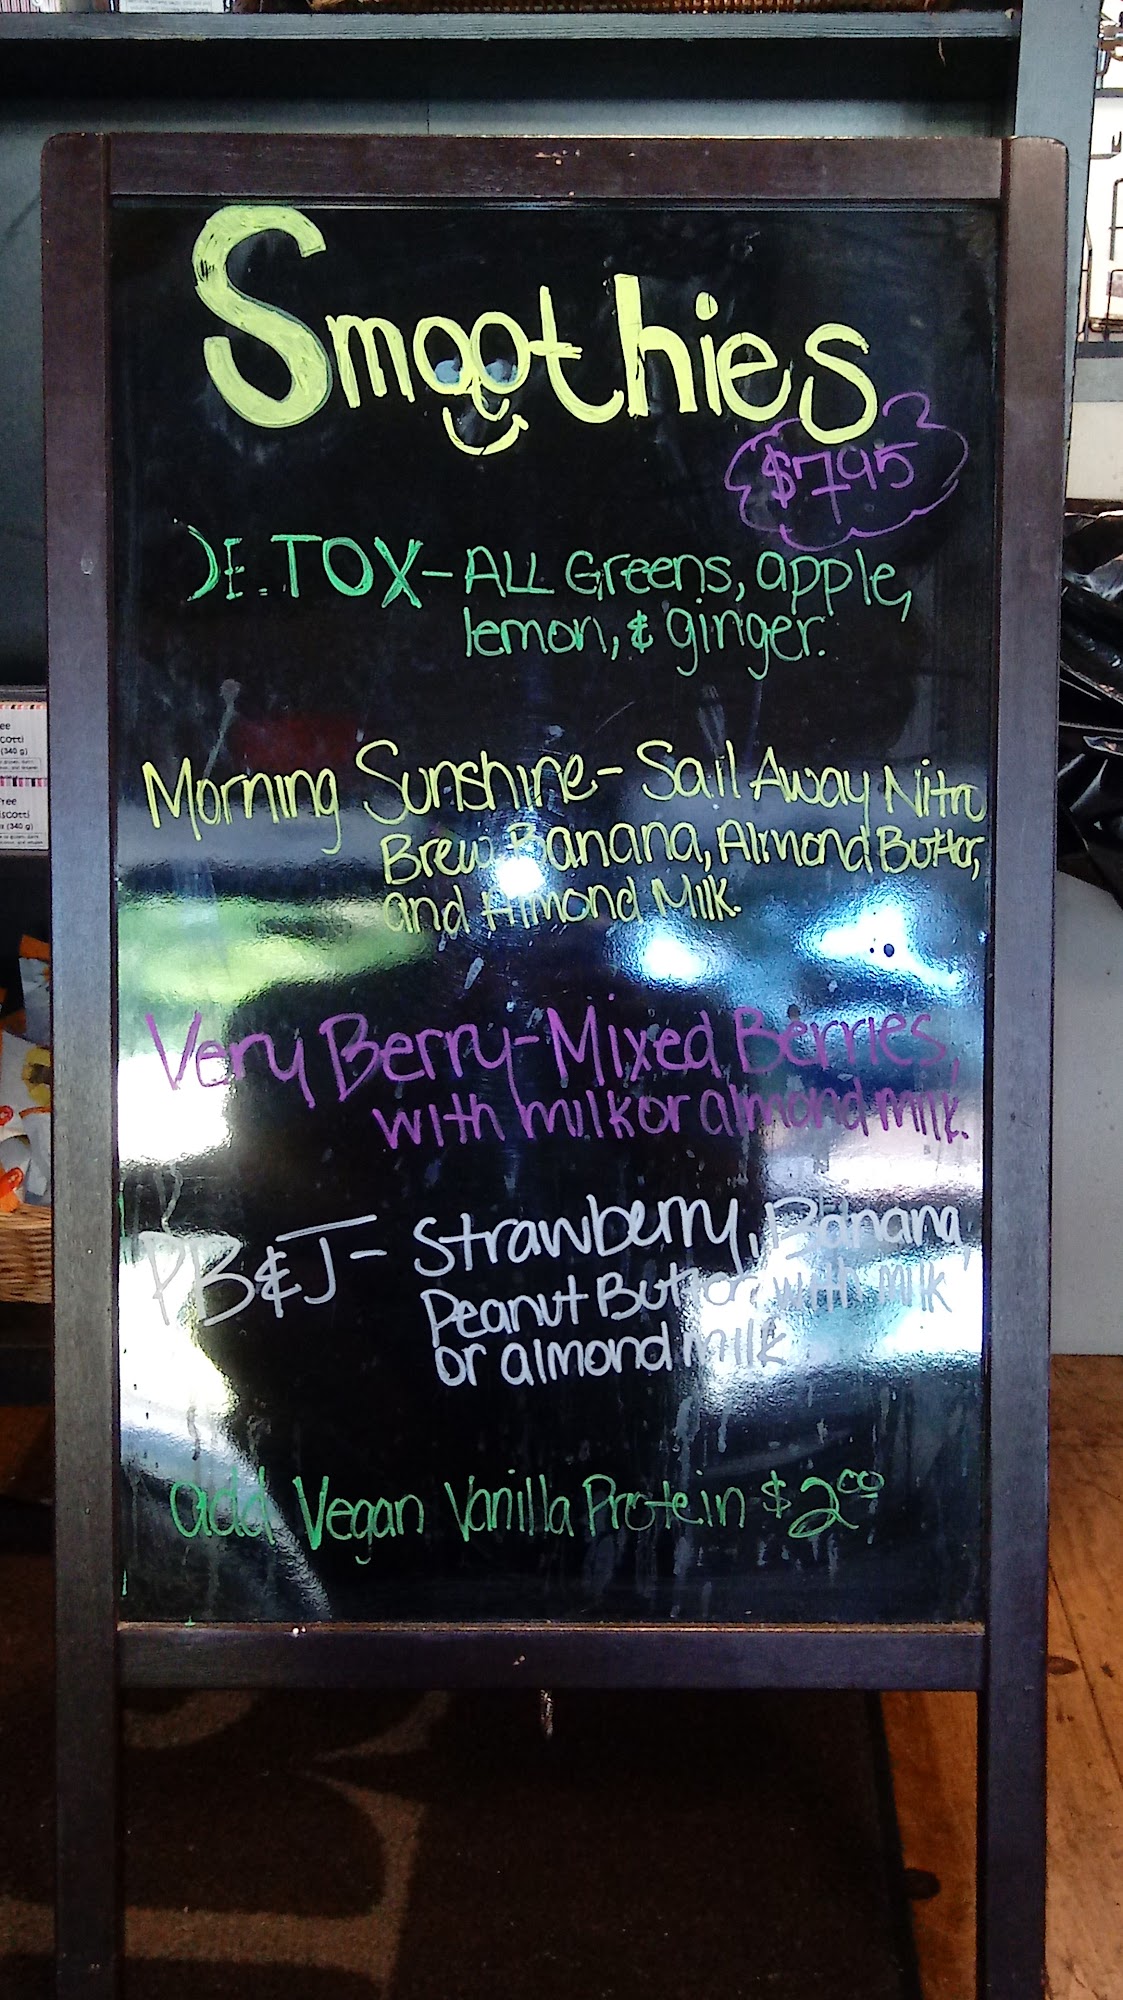 Smoothies
$7.95
DETOX - ALL Greens, apple,
lemon, & ginger.
Morning Sunshine - Sail Away Nitro
Brew, Banana, Almond Butter,
and Almond Milk.
Very Berry - Mixed Berries,
with milk or almond milk.
PB&J - Strawberry, Banana,
Peanut Butter, with milk
or almond milk
add Vegan Vanilla Protein $2.00
(340 g)